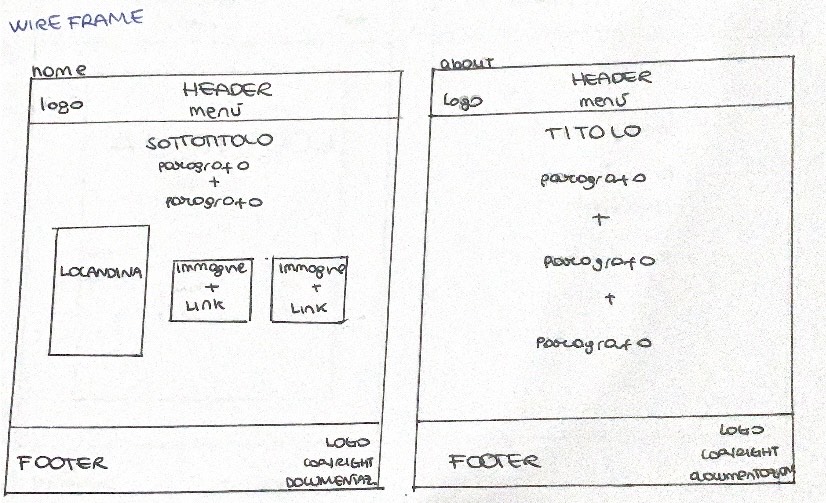 WIREFRAME
home
HEADER
logo
menù
SOTTOTITOLO
paragrafo
+
paragrafo
LOCANDINA
immagine
+
LINK
immagine
+
LINK
FOOTER
LOGO
COPYRIGHT
DOCUMENTAZ.
about
HEADER
Logo
menù
TITOLO
paragrafo
+
paragrafo
+
paragrafo
FOOTER
LOGO
COPYRIGHT
DOCUMENTAZION